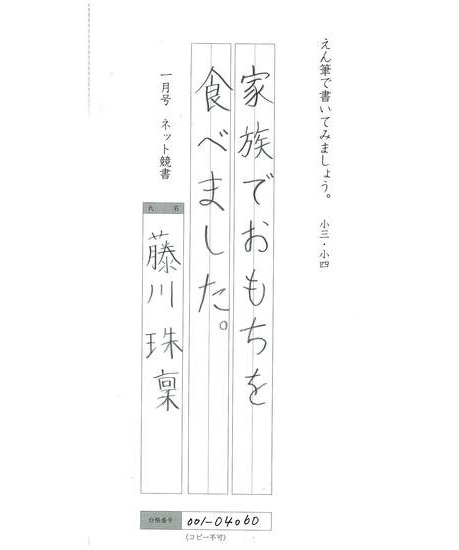 えん筆で書いてみましょう。 小三・小四
家族でおもちを
食べました。
一月号 ネット競書
氏名
藤川 珠稟
台帳番号 001-04060
(コピー不可)